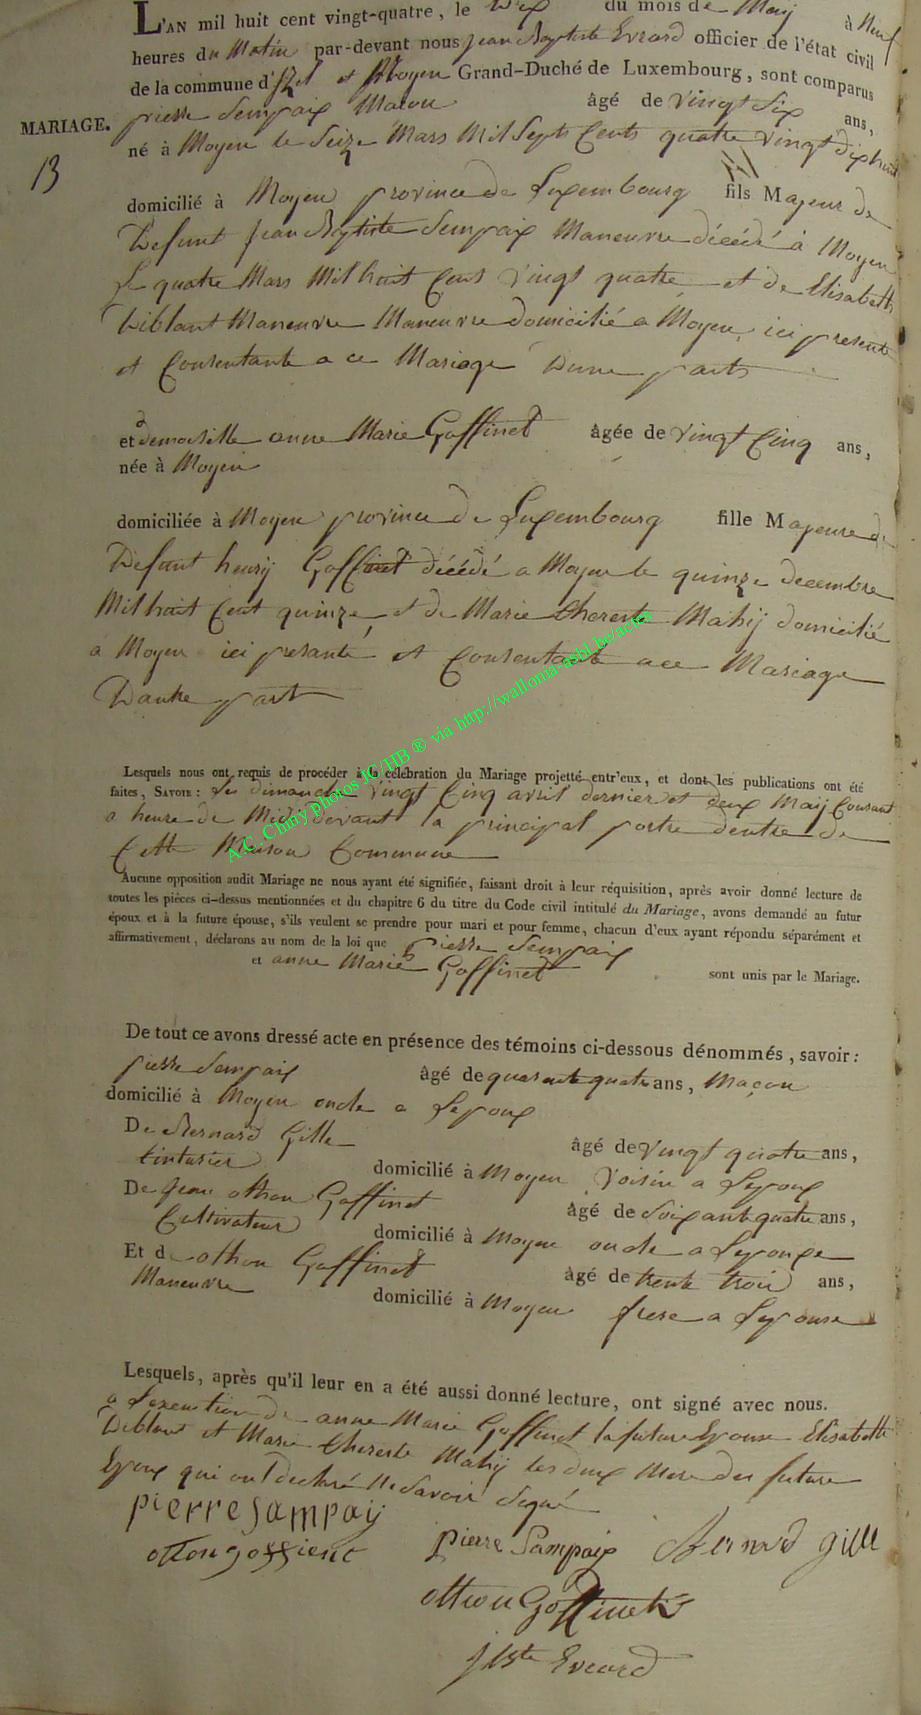 L'AN mil huit cent vingt-quatre, le Dix du mois de Maij à Neuf
heures du Matin par-devant nous jean Baptiste Evrard officier de l'état civil
de la commune d'Izel et Moyen Grand-Duché de Luxembourg, sont comparus
MARIAGE.
pierre Sempaix Macon âgé de vingt Six ans,
né à Moyen le Seize Mars Mil Septs Cents quatre vingt dix huit
13
domicilié à Moyen province de Luxembourg fils Majeur de
Defunt Jean Baptiste Sempaix Maneuvre décédé à Moyen
Le quatre Mars Mil huit Cent vingt quatre et de Elisabeth
Diblant Maneuvre Maneuvre domicilié a Moyen, ici presente
et Consentante a ce Mariage Dune parts
et demoiselle anne Marie Goffinet âgée de vingt Cinq ans,
née à Moyen
domiciliée à Moyen province de Luxembourg fille Majeure de
Defunt henrij Goffinet décédé a Moyen le quinze decembre
Mil huit Cent quinze, et de Marie therese Mahij domicilié
a Moyen ici presante et Consentante a ce Mariage
Dautre part
Lesquels nous ont requis de procéder à la célébration du Mariage projetté entr'eux, et dont les publications ont été
faites, SAVOIR : Les dimanche vingt Cinq avril dernier et deux Maij Courant
a heure de Midi devant la principal portre dentre de
Cette Maison Commune
Aucune opposition audit Mariage ne nous ayant été signifiée, faisant droit à leur réquisition, après avoir donné lecture de
toutes les pièces ci-dessus mentionnées et du chapitre 6 du titre du Code civil intitulé du Mariage, avons demandé au futur
époux et à la future épouse, s'ils veulent se prendre pour mari et pour femme, chacun d'eux ayant répondu séparément et
affirmativement, déclarons au nom de la loi que pierre Sempaix
et anne Marie Goffinet sont unis par le Mariage.
De tout ce avons dressé acte en présence des témoins ci-dessous dénommés, savoir :
pierre Sempaix âgé de quarante quatre ans, Maçon
domicilié à Moyen oncle a Lepoux
De Bernard Gille âgé de vingt quatre ans,
tinturier domicilié à Moyen voisin a Lepoux
De Jean othon Goffinet âgé de Soixante quatre ans,
Cultivateur domicilié à Moyen oncle a Lepouse
Et de othon Goffinet âgé de trente trois ans,
Maneuvre domicilié à Moyen frere a Lepouse
Lesquels, après qu'il leur en a été aussi donné lecture, ont signé avec nous.
a Lexcution de anne Marie Goffinet la future Epouse Elisabeth
Diblant et Marie therese Mahij les deux Mere des future
Epoux qui ont declaré ne Savoir Signé
pierre Sampaij
pierre Sampaix Bernard gille
otton goffienet
otton Goffinet
J Bste Evrard
A.C. Chiny photos JC/HB ® via http://wallonia-asbl.be/actes